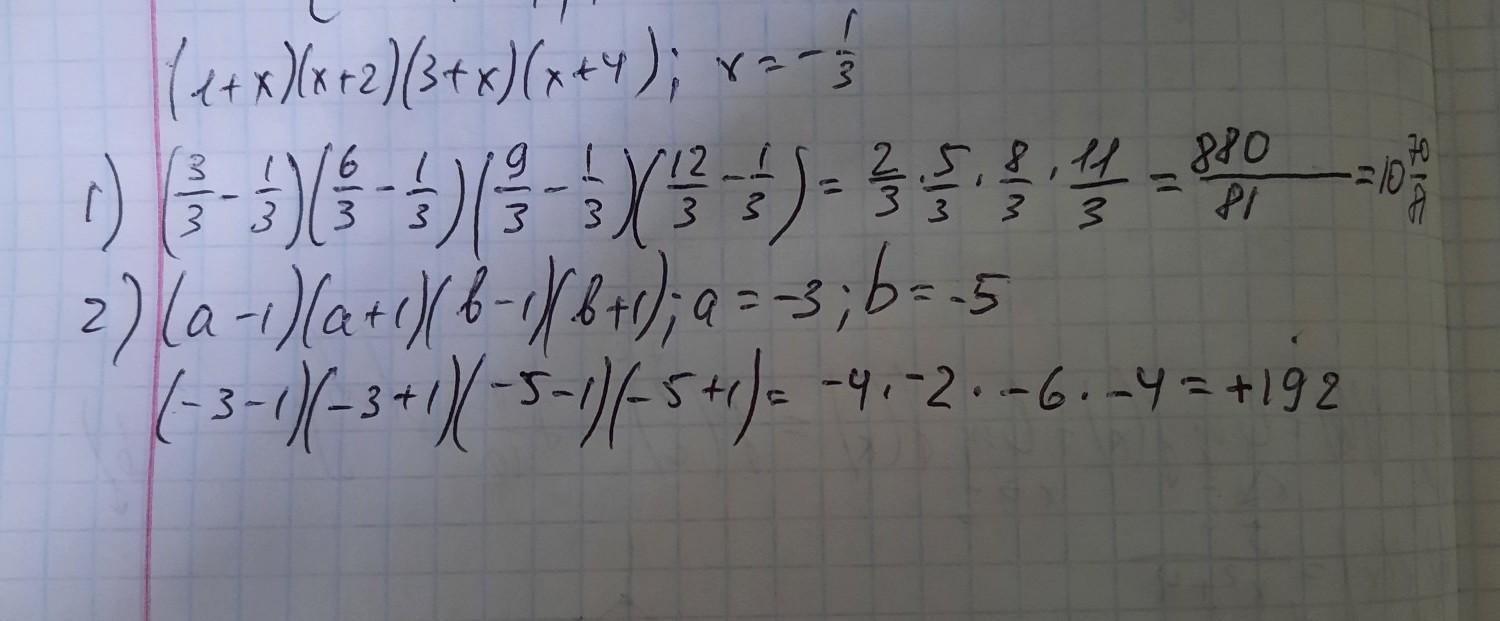 (1+x)(x+2)(3+x)(x+4); x=-1/3
1) (3/3-1/3)(6/3-1/3)(9/3-1/3)(12/3-1/3)=2/3·5/3·8/3·11/3=880/81=10 70/81
2) (a-1)(a+1)(b-1)(b+1); a=-3; b=-5
(-3-1)(-3+1)(-5-1)(-5+1)=-4·-2·-6·-4=+192